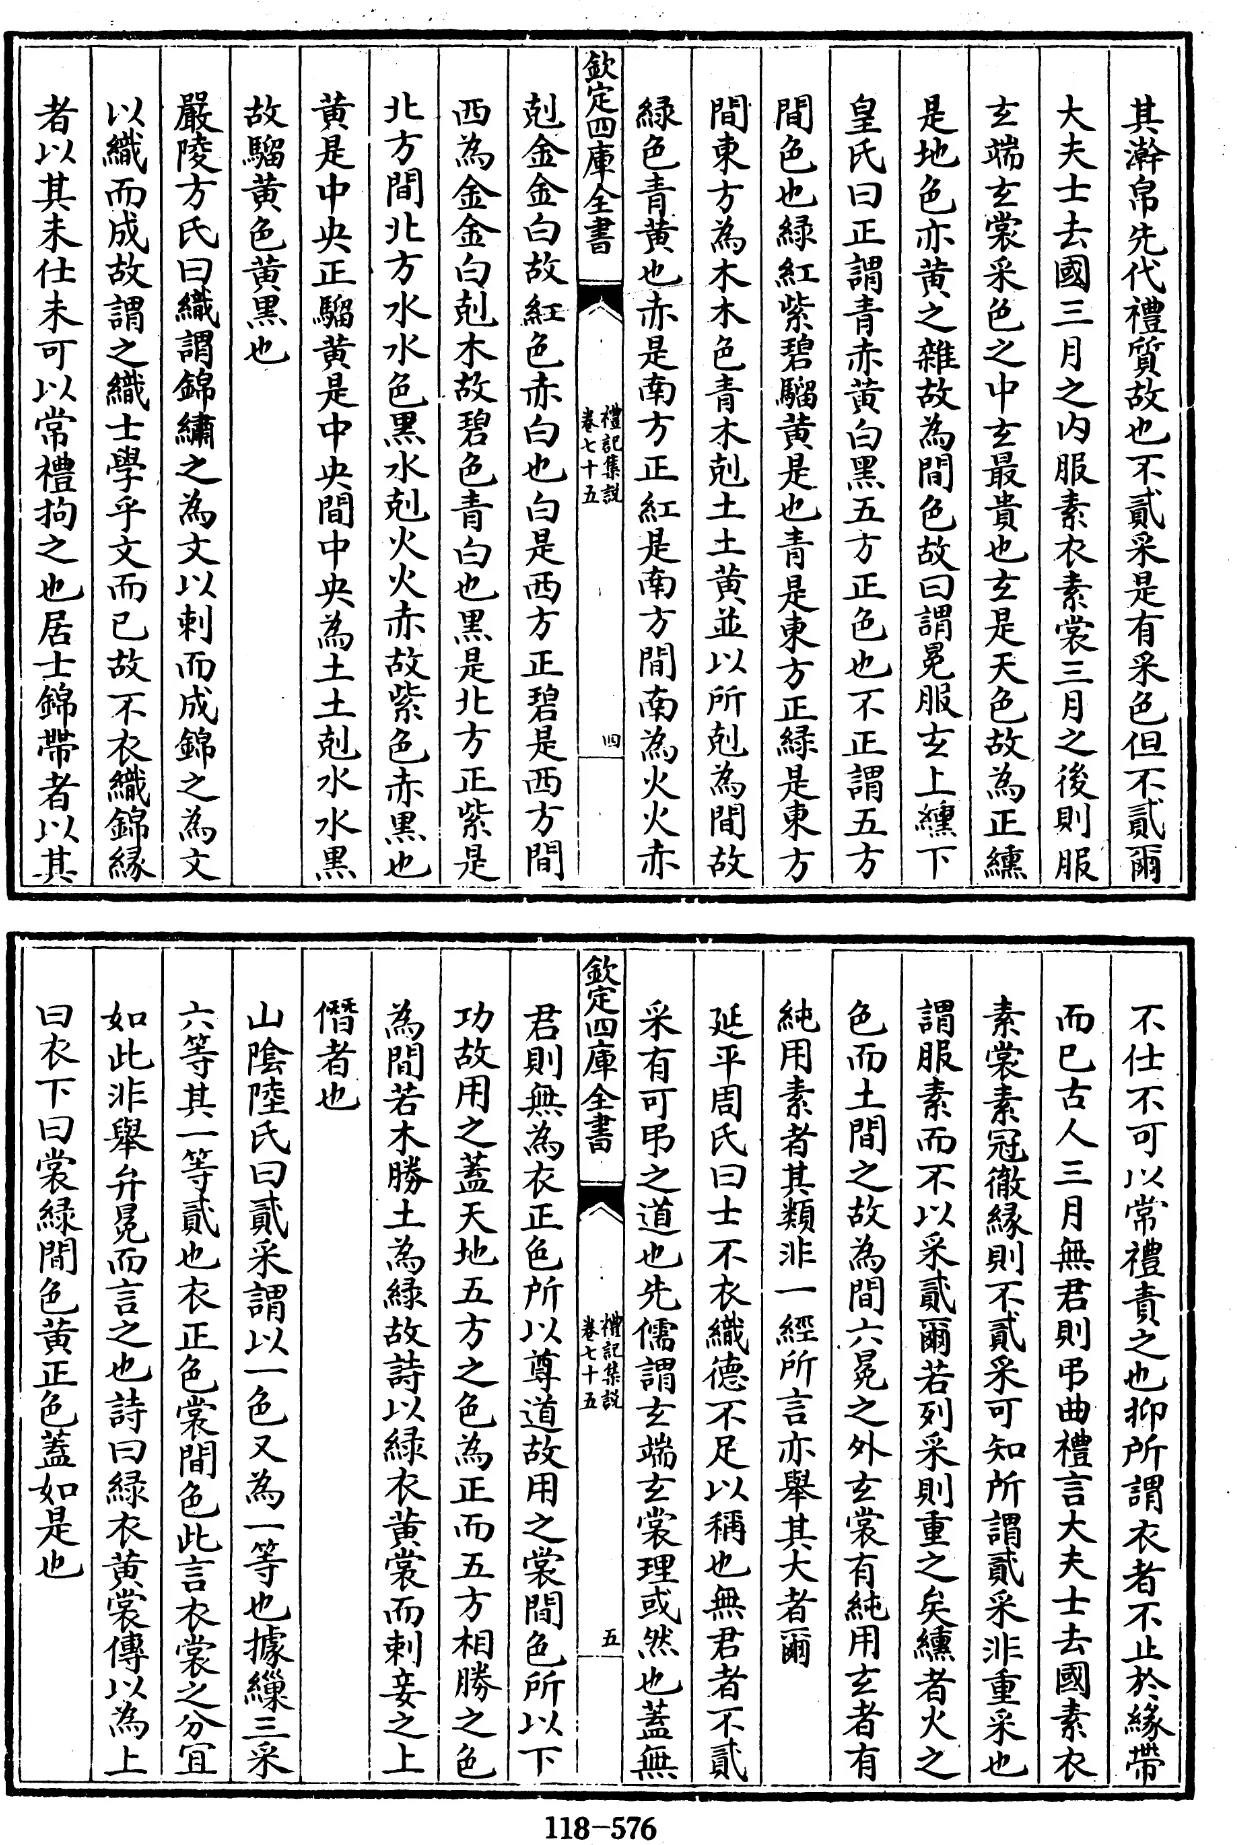 其澣帛先代禮質故也不貳采是有采色但不貳爾
大夫士去國三月之内服素衣素裳三月之後則服
玄端玄裳采色之中玄最貴也玄是天色故為正纁
是地色亦黄之雜故為間色故曰謂冕服玄上纁下
皇氏曰正謂青赤黄白黑五方正色也不正謂五方
間色也緑紅紫碧騮黄是也青是東方正緑是東方
間東方為木木色青木剋土土黄並以所剋為間故
緑色青黄也赤是南方正紅是南方間南為火火赤
欽定四庫全書
禮記集說
卷七十五
四
剋金金白故紅色赤白也白是西方正碧是西方間
西為金金白剋木故碧色青白也黑是北方正紫是
北方間北方水水色黑水剋火火赤故紫色赤黑也
黄是中央正騮黄是中央間中央為土土剋水水黑
故騮黄色黄黑也
嚴陵方氏曰織謂錦繡之為文以刺而成錦之為文
以織而成故謂之織士學乎文而已故不衣織錦縁
者以其未仕未可以常禮拘之也居士錦帶者以其
不仕不可以常禮責之也抑所謂衣者不止於緣帶
而已古人三月無君則弔曲禮言大夫士去國素衣
素裳素冠徹縁則不貳采可知所謂貳采非重采也
謂服素而不以采貳爾若列采則重之矣纁者火之
色而土間之故為間六冕之外玄裳有純用玄者有
純用素者其類非一經所言亦舉其大者爾
延平周氏曰士不衣織德不足以稱也無君者不貳
采有可弔之道也先儒謂玄端玄裳理或然也蓋無
欽定四庫全書
禮記集說
卷七十五
五
君則無為衣正色所以尊道故用之裳間色所以下
功故用之蓋天地五方之色為正而五方相勝之色
為間若木勝土為緑故詩以緑衣黄裳而刺妾之上
僭者也
山陰陸氏曰貳采謂以一色又為一等也據繅三采
六等其一等貳也衣正色裳間色此言衣裳之分宜
如此非舉弁冕而言之也詩曰緑衣黄裳傳以為上
曰衣下曰裳緑間色黄正色蓋如是也
118-576